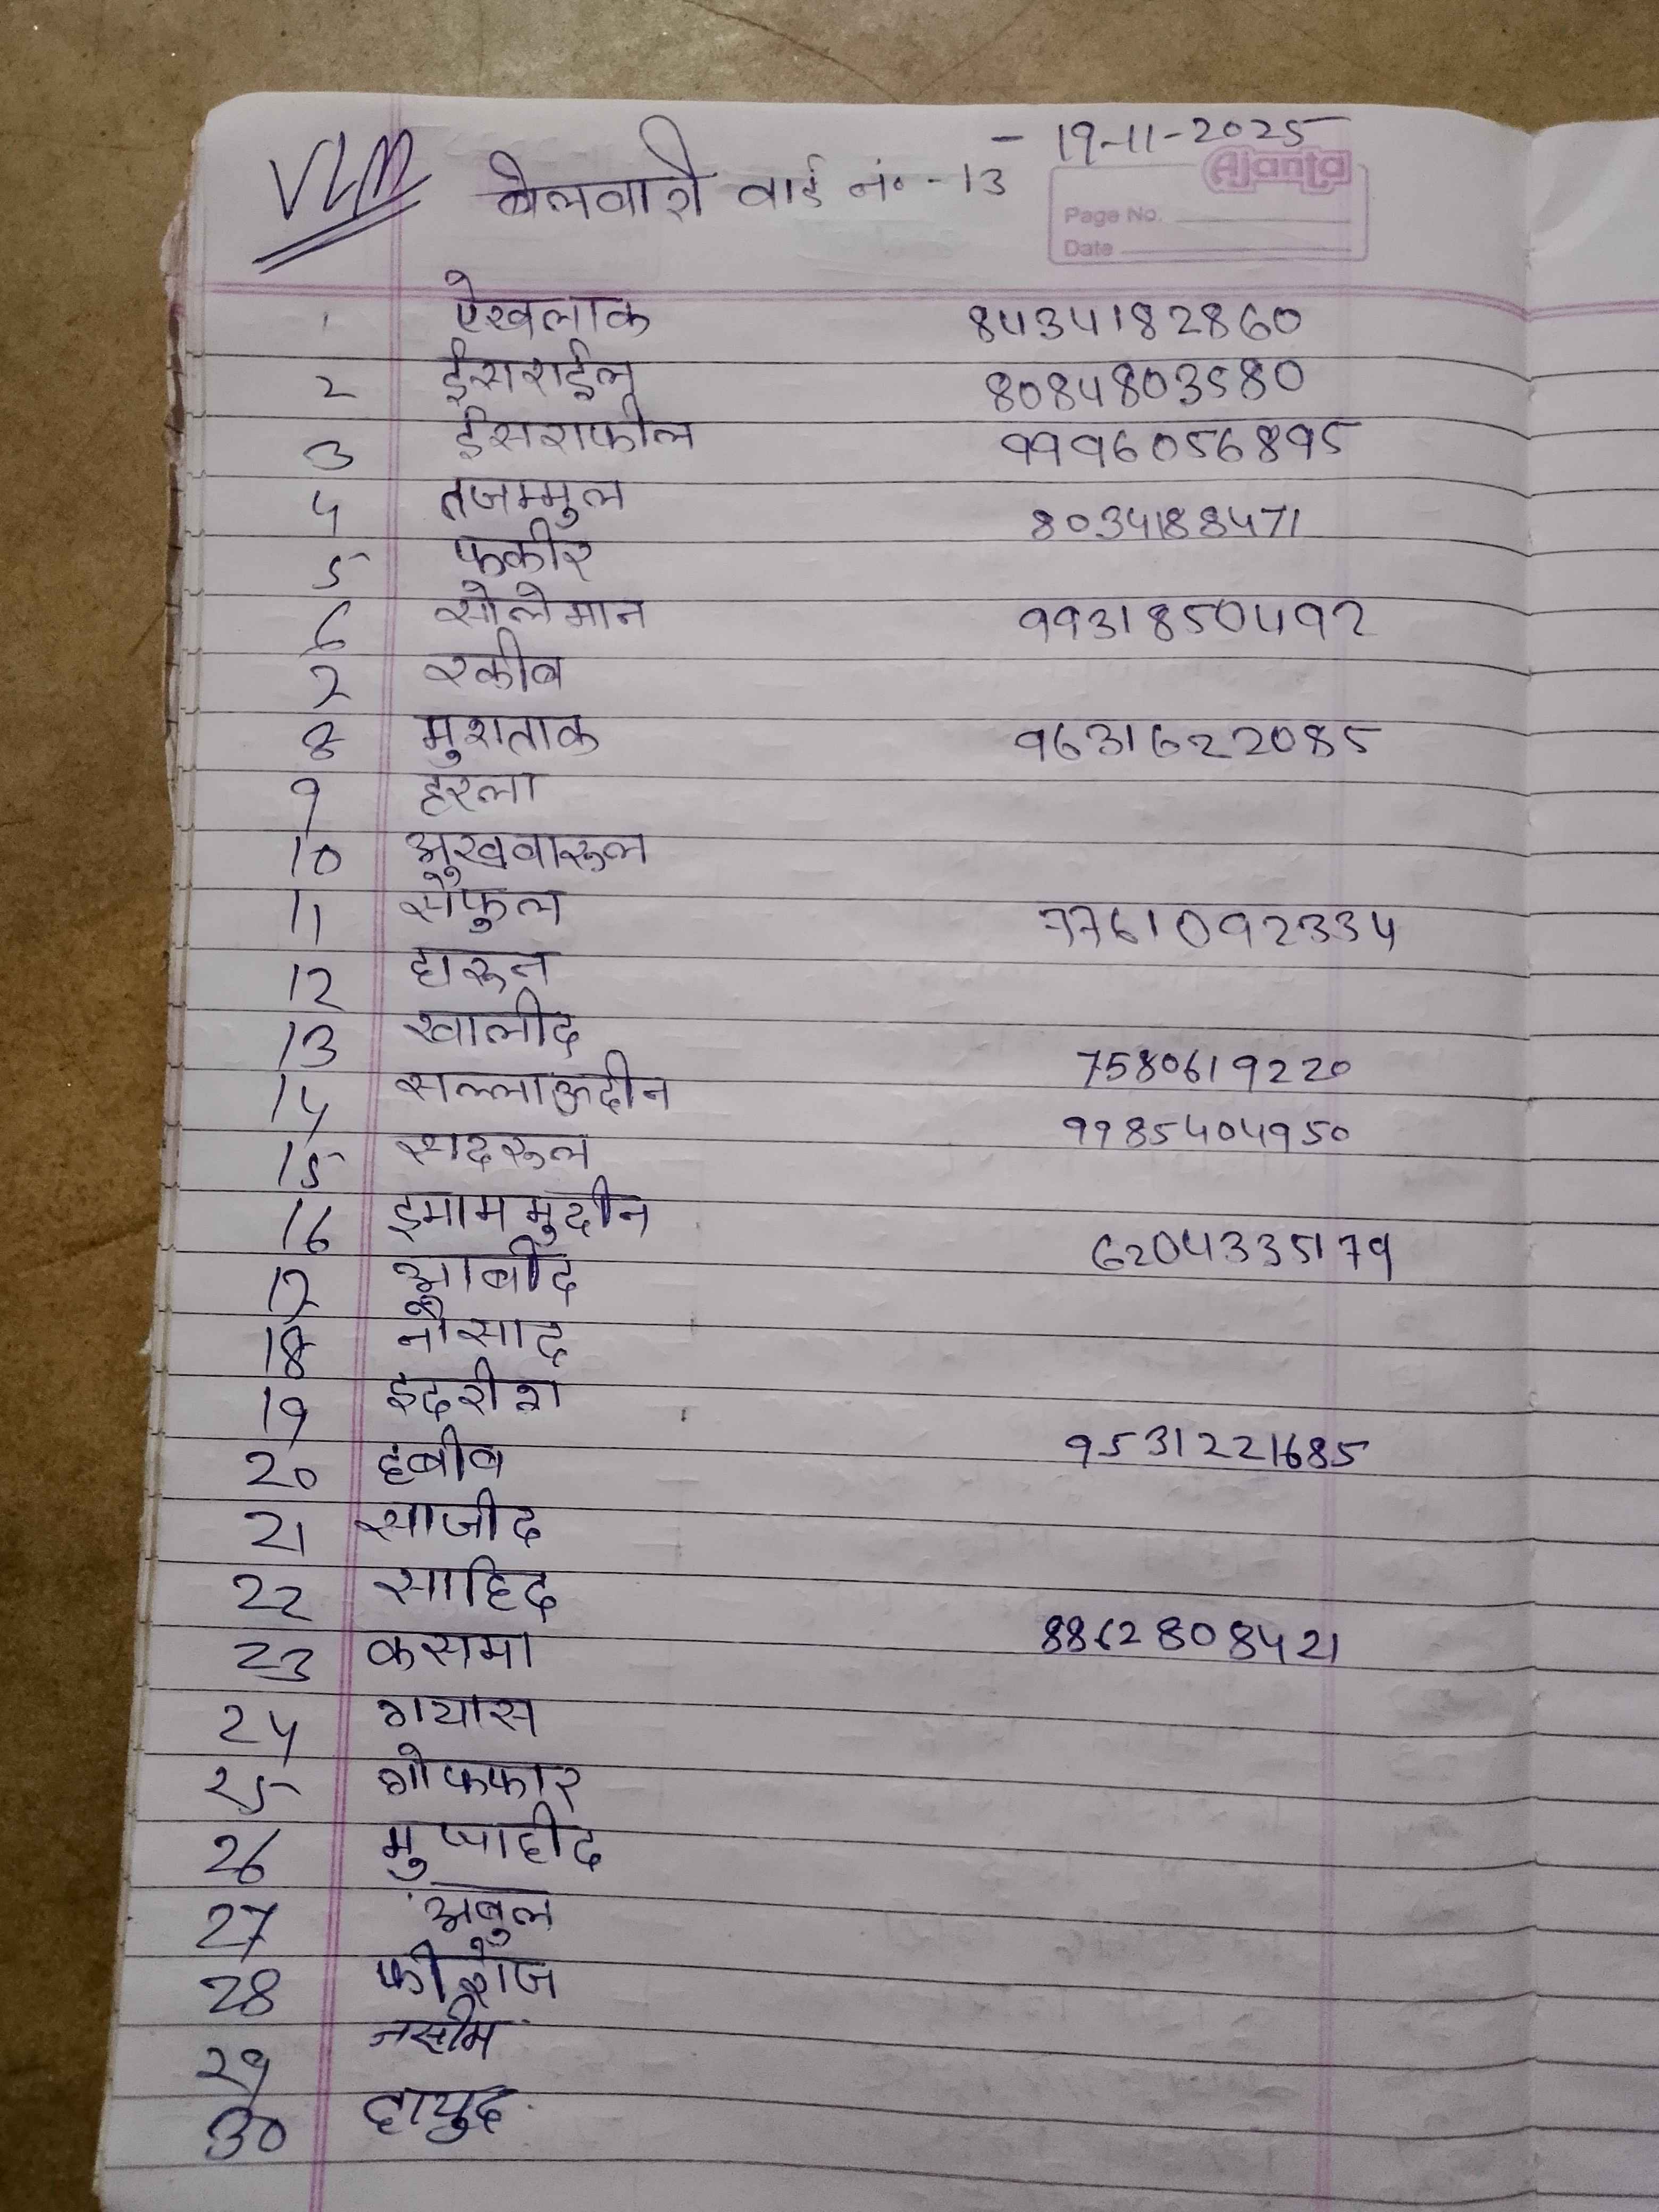 - 19-11-2025
VLM बेलवारी वार्ड नं० -13
Ajanta
Page No.
Date
1 ऐखलाक 8434182860
2 ईसराईल 8084803580
3 ईसराफील 9996056895
4 तजम्मुल 8034188471
5 फकीर
6 सोलेमान 9931850492
7 रकीब
8 मुशताक 9631622085
9 हरला
10 अुखवारूल
11 सैफुल 7761092334
12 हारून
13 खालीद
14 सल्लाऊदीन 7580619220
15 सदरूल 9985404950
16 इमाममुदीन
17 आबीद 6204335179
18 नौसाद
19 इदरीश
20 हबीब 9531221685
21 साजीद
22 साहिद
23 कसमा 8862808421
24 गयास
25 गोफफार
26 मुजाहीद
27 अबुल
28 फीरोज
29 नसीम
30 दायुद